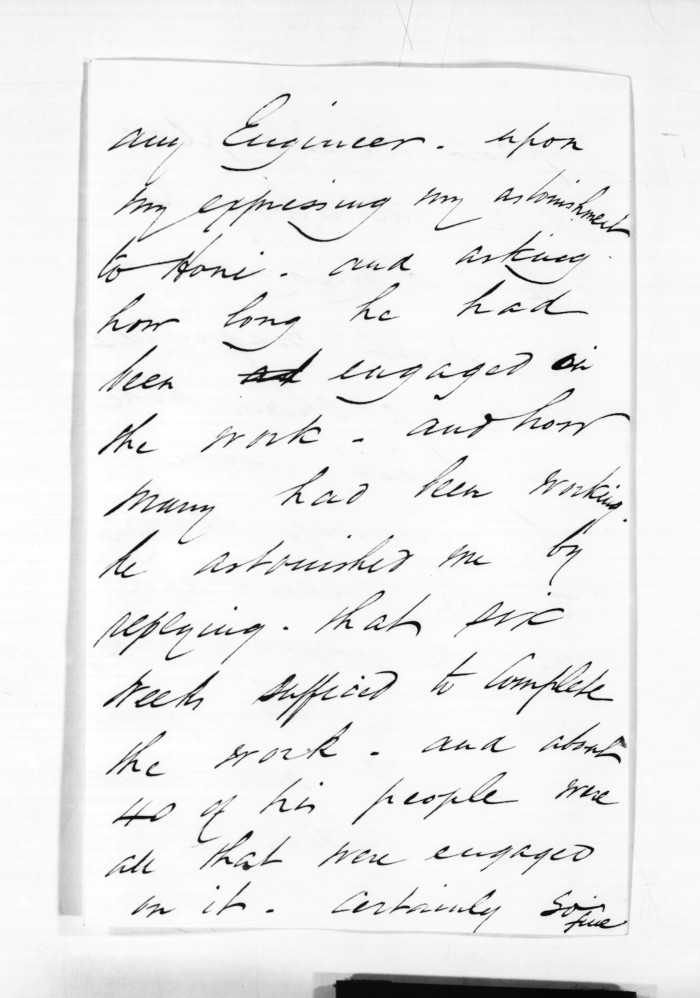 any Engineer. upon
my expressing my astonishment
to Honi. and asking.
how long he had
been engaged in
the work - and how
many had been working.
he astonished me by
replying. that six
weeks sufficed to complete
the work. and about
40 of his people were
all that were engaged
on it. Certainly so
fine